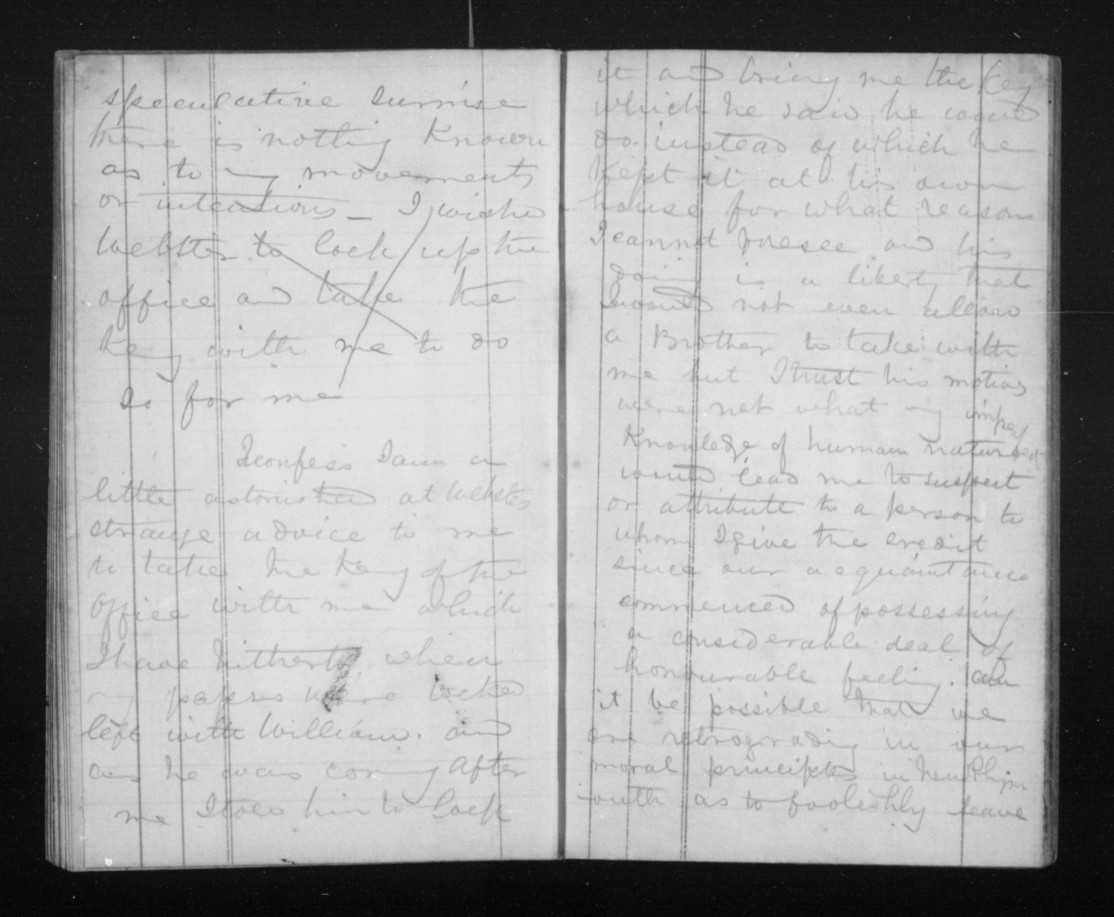 speculative surmise
there is nothing Known
as to my movements
or intentions _ I wishe
Webster to lock up the
office and take the
Key with me to do
so for me
I confess I am a
little astonished at Websters
strange advice to me
to take the Key of the
office with me which
I have hitherto when
my papers were locked
left with William. and
as he was coming after
me I told him to lock
it and bring me the Key
which he said he would
do instead of which he
Kept it at his own
house for what reason
I cannot foresee and his
doing is a liberty that
I would not even allow
a Brother to take with
me but I trust his motives
were not what my
Knowledge of human nature
would lead me to suspect
or attribute to a person to
whom I give the credit
since our acquaintance
commenced of possessing
a considerable deal of
honourable feeling. can
it be possible that we
are retrograding in our
moral principles in New Plym
outh as to foolishly leave